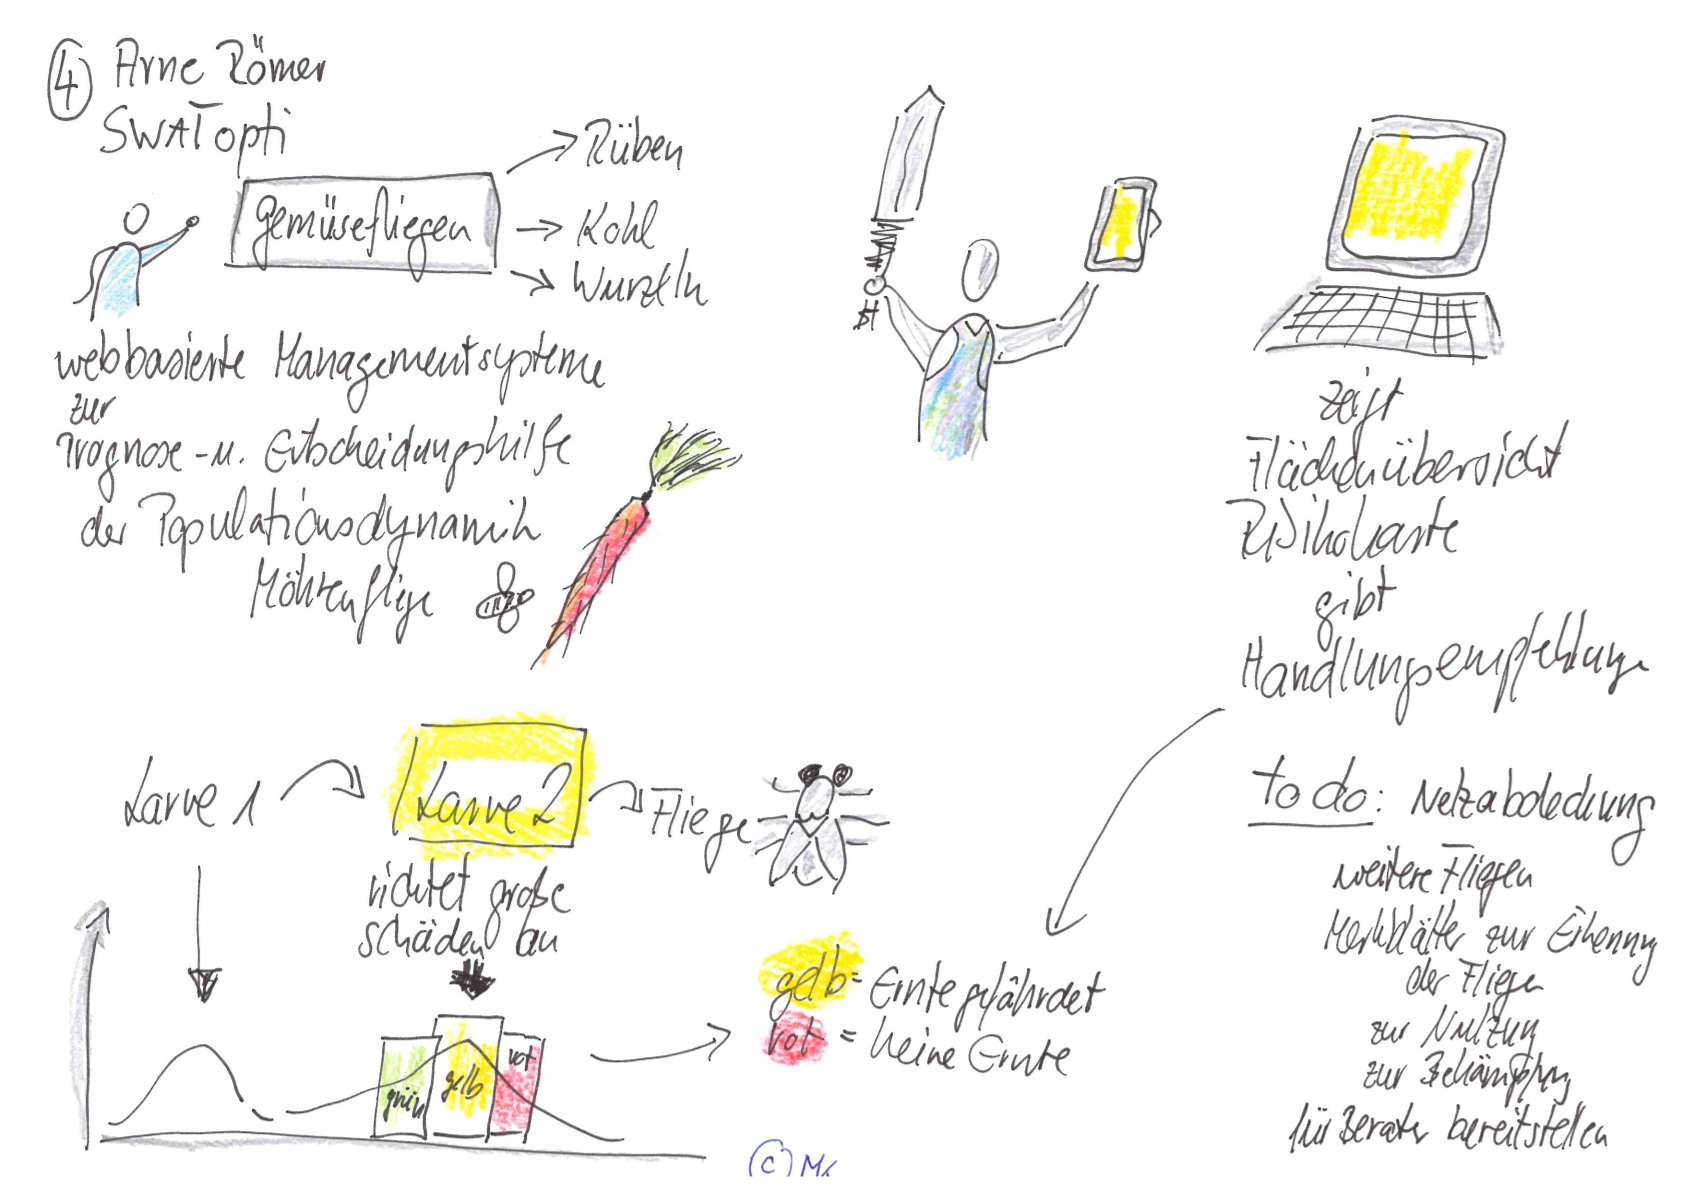 4 Arne Römer
SWAT opti
Gemüsefliegen
Rüben
Kohl
Wurzeln
webbasierte Managementsysteme
zur
Prognose- u. Entscheidungshilfe
der Populationsdynamik
Möhrenfliege
zeigt
Flächenübersicht
Risikokarte
gibt
Handlungsempfehlung
Larve 1
Larve 2
Fliege
richtet große
schäden an
grün
gelb
rot
gelb = Ernte gefährdet
rot = keine Ernte
to do: Netzabdeckung
weitere Fliegen
Merkblätter zur Erkennung
der Fliegen
zur Nutzung
zur Bekämpfung
für Berater bereitstellen
(c) MK